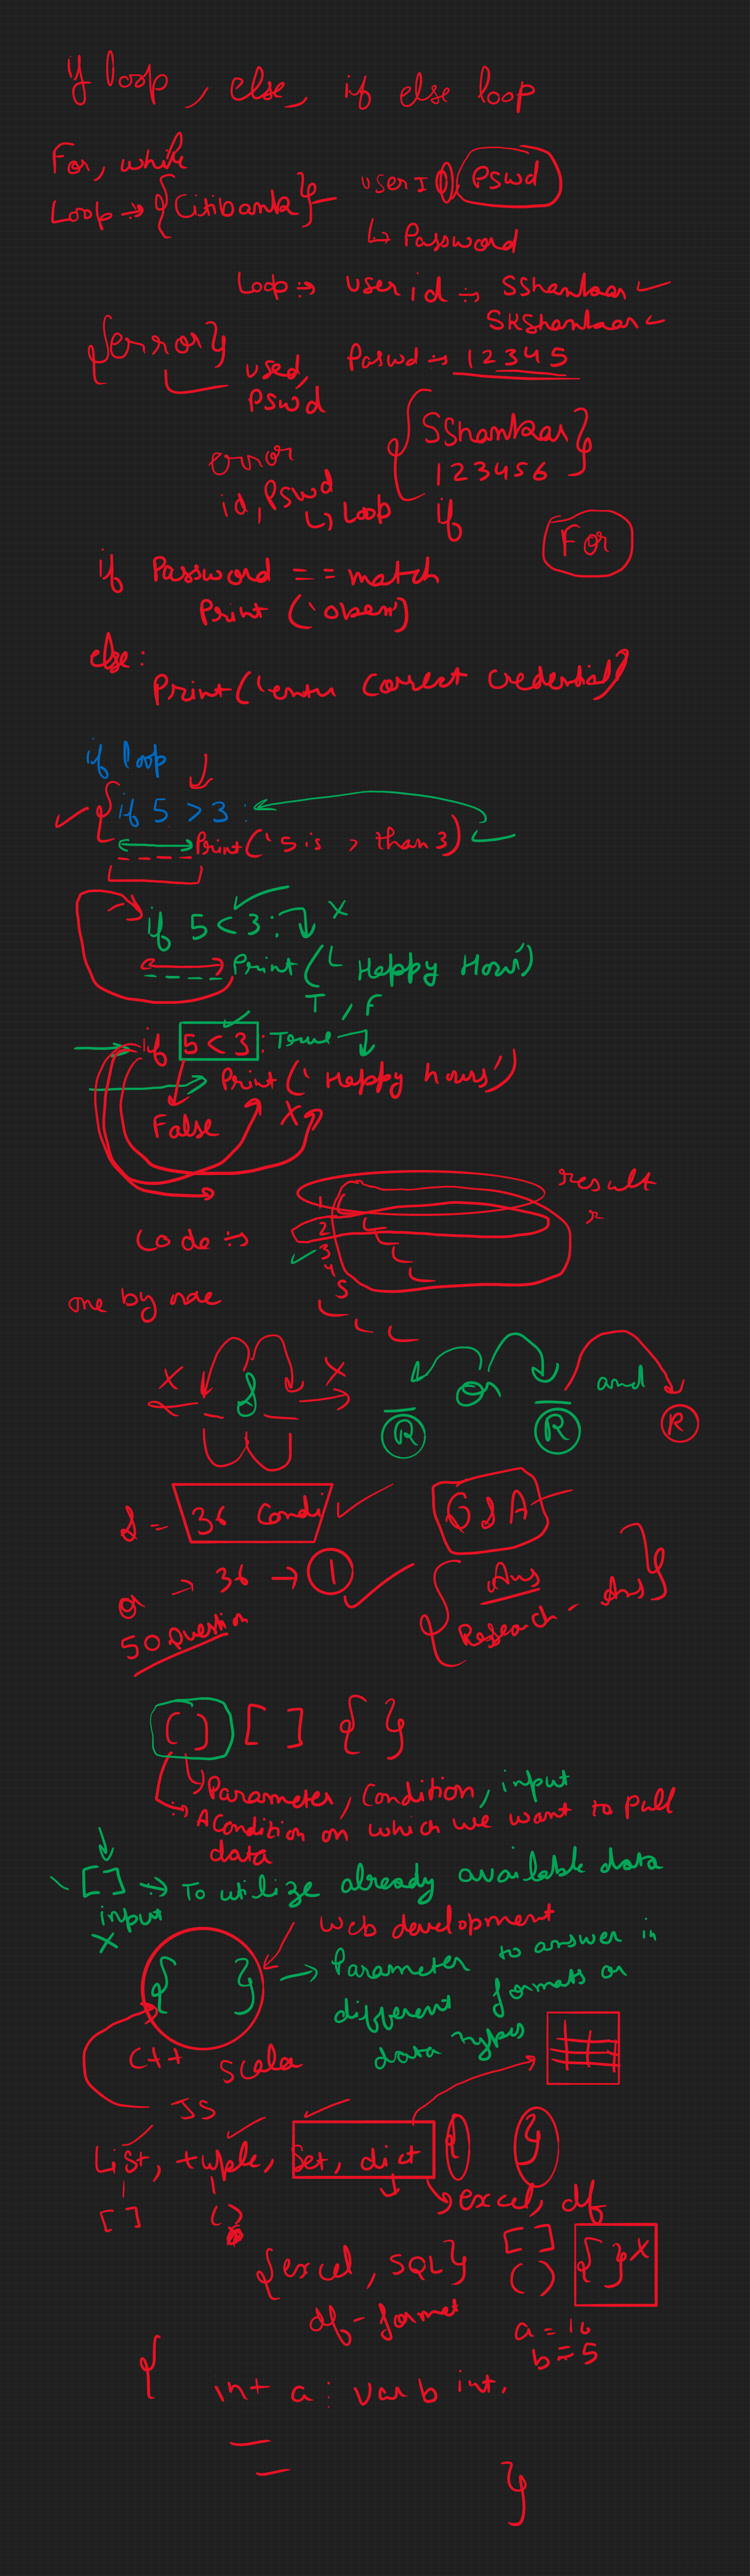 if loop, else, if else loop
For, while
Loop → {Citibank} – user ID, Pswd
↳ Password
Loop :→ user id :- SShankaar
SKShankaar
{error} Paswd :- 12345
used, Pswd
{SShankar
123456}
error
id, Pswd
↳ Loop if
For
if Password == match
Print ('open')
else:
Print('enter correct credential)
if loop
{if 5 > 3 :
Print('5 is > than 3)
if 5 < 3 : X
Print(' Happy Hour')
T, F
if 5 < 3 : True
Print(' Happy hours')
False X
result
1
Code :→ 2
3
4
5
one by one
X & X or and
R R R
& = 36 Condi QSA
or → 36 → 1 {Ans
50 Question Research - Ans}
( ) [ ] { }
↳ Parameter, Condition, input
:→ A Condition on which we want to pull
data
[ ] :→ To utilize already available data
input
X Web development
{ } → Parameter to answer in
different formats or
data types
C++ Scala
JS
List, tuple, Set, dict { }
[ ] ( ) excel, df
{excel, SQL} [ ] ( ) { } X
df - format
a = 10
b = 5
{
int a : var b int.
}